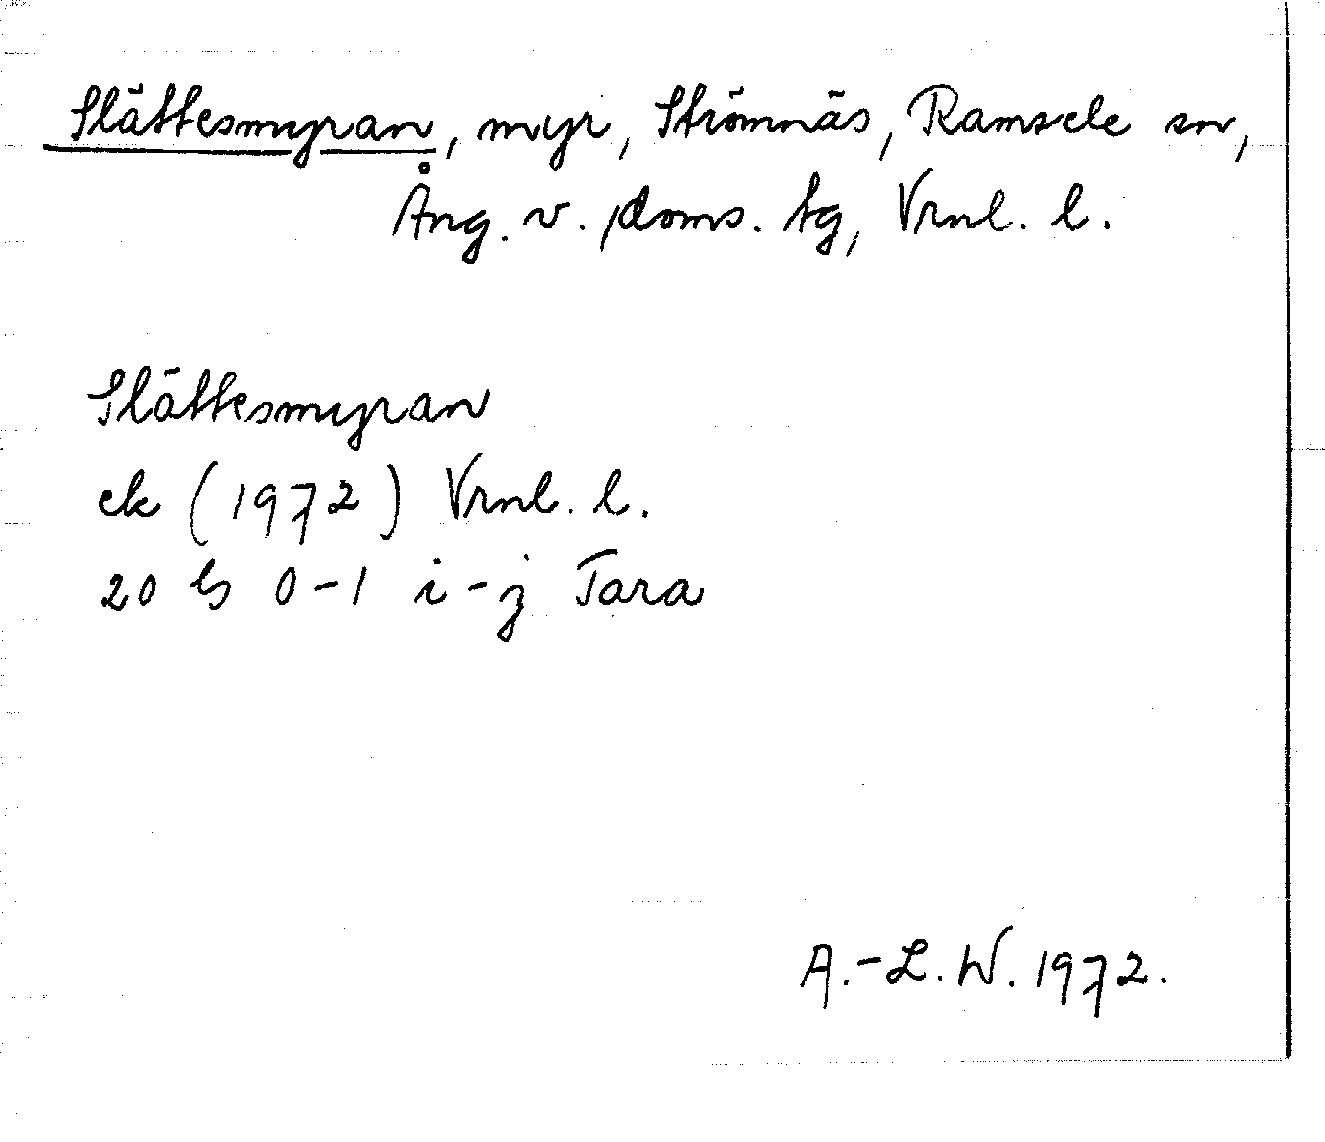 Slåttesmyran, myr, Strömnäs, Ramsele sn,
Ång. v. doms. tg, Vrnl. l.
Slåttesmyran
ek (1972) Vrnl. l.
20 G 0-1 i-j Tara
A.-L.W. 1972.